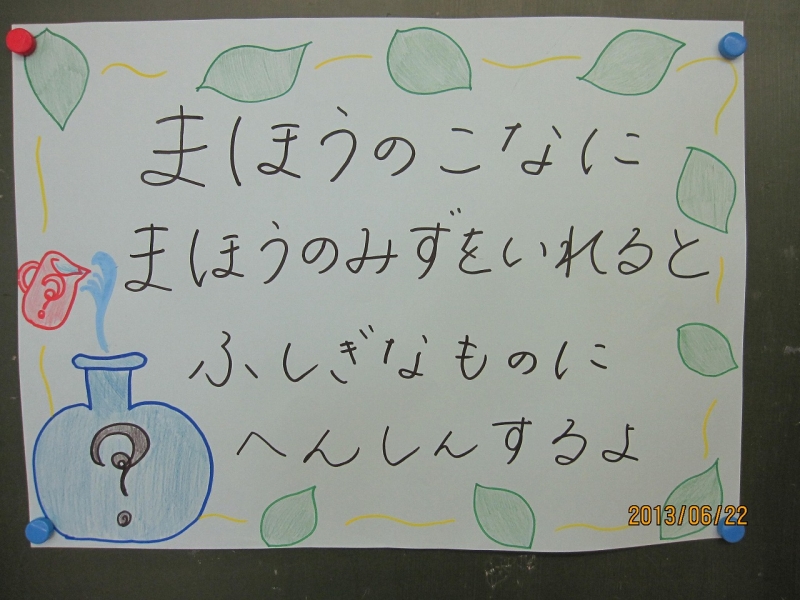 まほうのこなに
まほうのみずをいれると
ふしぎなものに
へんしんするよ
?
?
2013/06/22